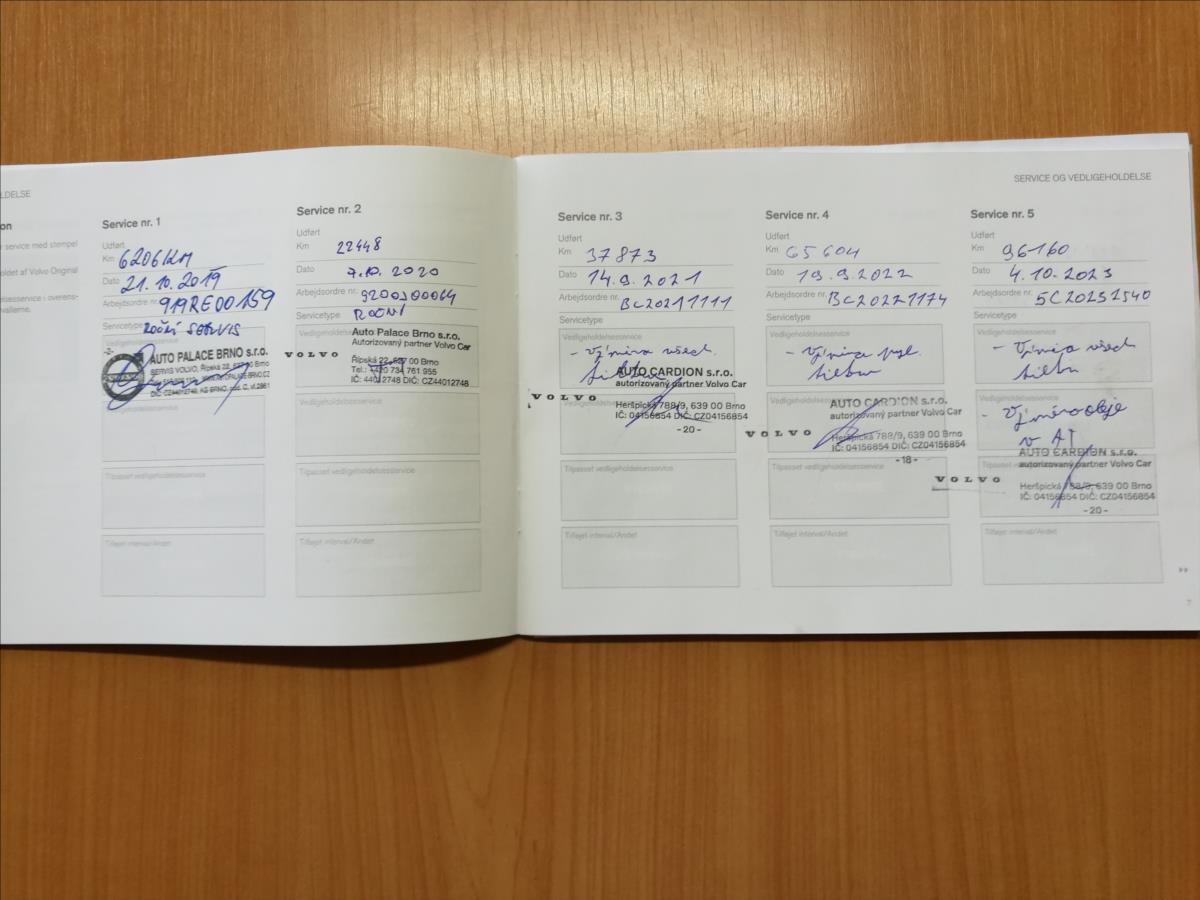 LDELSE
on
r service med stempel
oldet af Volvo Original
elsesservice i overens-
vallerne.
Service nr. 1
Udført
Km 6206 KM
Dato 21.10.2019
Arbejdsordre nr. 919RE00159
Servicetype
ROČNÍ SERVIS
Vedligeholdelsesservice
AUTO PALACE BRNO s.r.o.
Vedligeholdelsesservice
Tilpasset vedligeholdelsesservice
Tilføjet interval/Andet
Service nr. 2
Udført
Km 22448
Dato 7.10. 2020
Arbejdsordre nr. 9200J00064
Servicetype ROČNÍ
VOLVO
Auto Palace Brno s.r.o.
Autorizovaný partner Volvo Car
Řípská 22, 627 00 Brno
Tel.: +420 734 761 955
IČ: 44012748 DIČ: CZ44012748
Vedligeholdelsesservice
Tilpasset vedligeholdelsesservice
Tilføjet interval/Andet
SERVICE OG VEDLIGEHOLDELSE
Service nr. 3
Udført
Km 37873
Dato 14.9.2021
Arbejdsordre nr. BC20211111
Servicetype
Vedligeholdelsesservice
- Výměna všech
VOLVO
AUTO CARDION s.r.o.
autorizovaný partner Volvo Car
Heršpická 788/9, 639 00 Brno
IČ: 04156854 DIČ: CZ04156854
- 20 -
Tilpasset vedligeholdelsesservice
Tilføjet interval/Andet
Service nr. 4
Udført
Km 65604
Dato 19.9.2022
Arbejdsordre nr. BC20221174
Servicetype
Vedligeholdelsesservice
- Výměna pyl.
filtru
VOLVO
AUTO CARDION s.r.o.
autorizovaný partner Volvo Car
Heršpická 788/9, 639 00 Brno
IČ: 04156854 DIČ: CZ04156854
- 18 -
Tilpasset vedligeholdelsesservice
Tilføjet interval/Andet
Service nr. 5
Udført
Km 96160
Dato 4.10.2023
Arbejdsordre nr. SC20231540
Servicetype
Vedligeholdelsesservice
- Výměna všech
filtrů
- Výměna oleje
v AT
VOLVO
AUTO CARDION s.r.o.
autorizovaný partner Volvo Car
Heršpická 788/9, 639 00 Brno
IČ: 04156854 DIČ: CZ04156854
- 20 -
Tilføjet interval/Andet
7